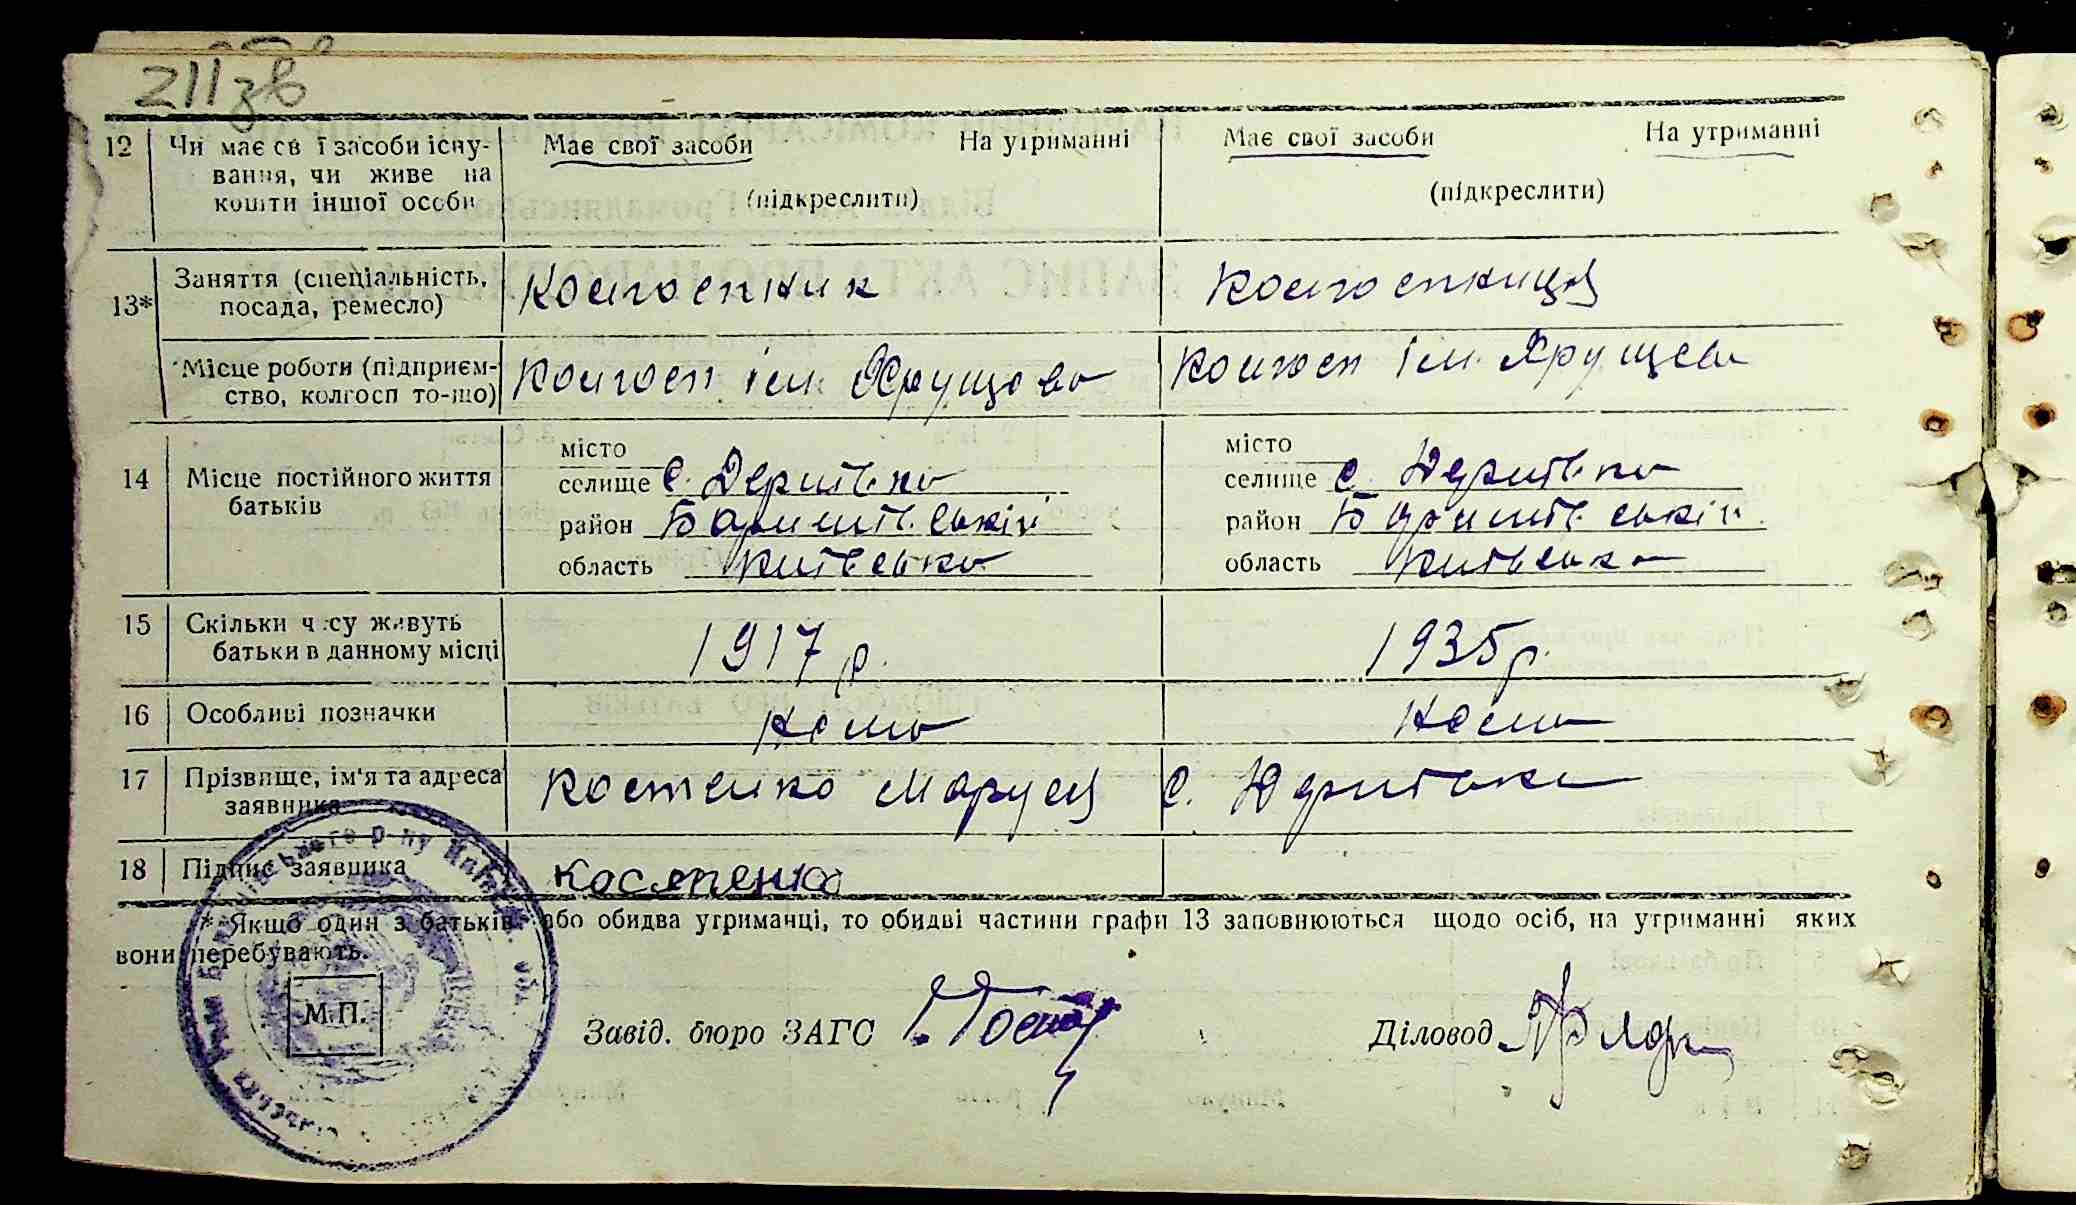 211зв
12 Чи має св ї засоби існу- Має свої засоби На утриманні Має свої засоби На утриманні
вання, чи живе на
кошти іншої особи (підкреслити) (підкреслити)
13* Заняття (спеціальність, Колгоспник Колгоспниця
посада, ремесло)
Місце роботи (підприєм- Колгосп ім. Хрущова Колгосп ім. Хрущова
ство, колгосп то-що)
місто місто
14 Місце постійного життя селище с. селище с.
батьків район район
область Київська область Київська
15 Скільки ч су живуть 1917 р. 1935 р.
батьки в данному місці
16 Особливі позначки Нема Нема
17 Прізвище, ім'я та адреса Костенко Маруся с.
заявника
18 Підпис заявника Костенко
* Якщо один з батьків або обидва утриманці, то обидві частини графи 13 заповнюються щодо осіб, на утриманні яких
вони перебувають.
М.П.
Завід. бюро ЗАГС Діловод